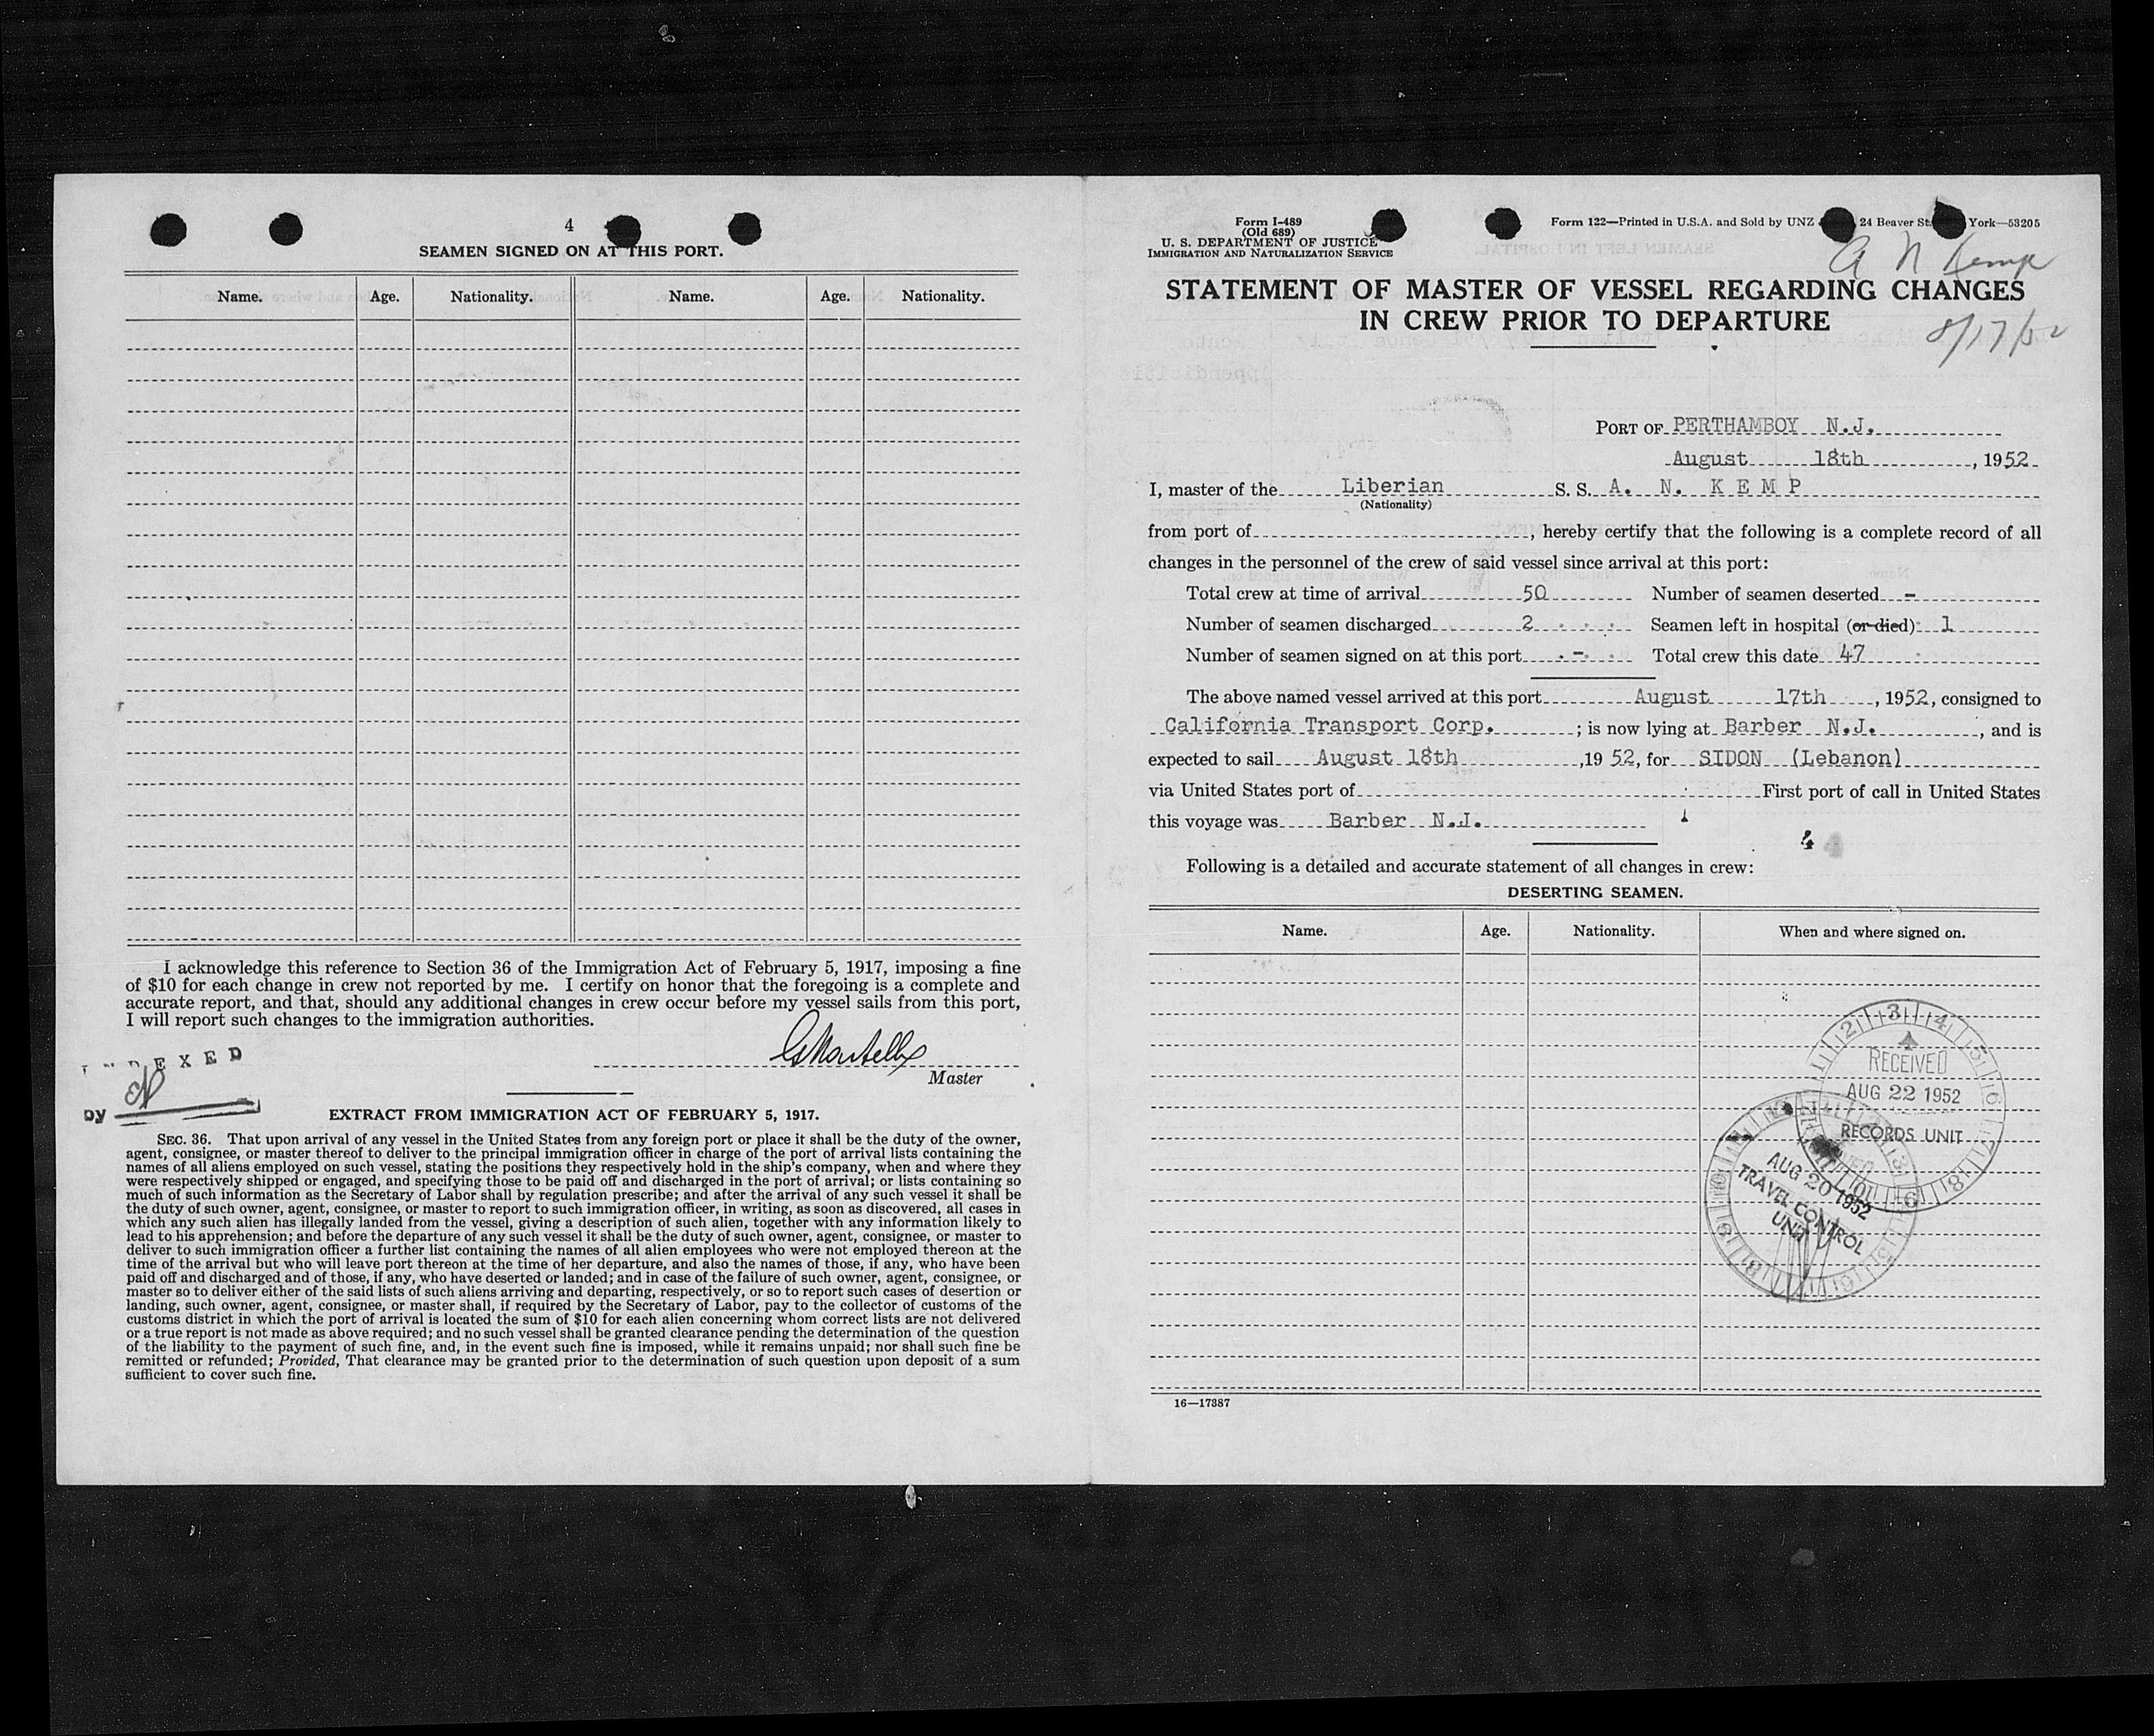 4
SEAMEN SIGNED ON AT THIS PORT.
Name. Age. Nationality. Name. Age. Nationality.
I acknowledge this reference to Section 36 of the Immigration Act of February 5, 1917, imposing a fine
of $10 for each change in crew not reported by me. I certify on honor that the foregoing is a complete and
accurate report, and that, should any additional changes in crew occur before my vessel sails from this port,
I will report such changes to the immigration authorities.
INDEXED
by
Master
EXTRACT FROM IMMIGRATION ACT OF FEBRUARY 5, 1917.
SEC. 36. That upon arrival of any vessel in the United States from any foreign port or place it shall be the duty of the owner,
agent, consignee, or master thereof to deliver to the principal immigration officer in charge of the port of arrival lists containing the
names of all aliens employed on such vessel, stating the positions they respectively hold in the ship's company, when and where they
were respectively shipped or engaged, and specifying those to be paid off and discharged in the port of arrival; or lists containing so
much of such information as the Secretary of Labor shall by regulation prescribe; and after the arrival of any such vessel it shall be
the duty of such owner, agent, consignee, or master to report to such immigration officer, in writing, as soon as discovered, all cases in
which any such alien has illegally landed from the vessel, giving a description of such alien, together with any information likely to
lead to his apprehension; and before the departure of any such vessel it shall be the duty of such owner, agent, consignee, or master to
deliver to such immigration officer a further list containing the names of all alien employees who were not employed thereon at the
time of the arrival but who will leave port thereon at the time of her departure, and also the names of those, if any, who have been
paid off and discharged and of those, if any, who have deserted or landed; and in case of the failure of such owner, agent, consignee, or
master so to deliver either of the said lists of such aliens arriving and departing, respectively, or so to report such cases of desertion or
landing, such owner, agent, consignee, or master shall, if required by the Secretary of Labor, pay to the collector of customs of the
customs district in which the port of arrival is located the sum of $10 for each alien concerning whom correct lists are not delivered
or a true report is not made as above required; and no such vessel shall be granted clearance pending the determination of the question
of the liability to the payment of such fine, and, in the event such fine is imposed, while it remains unpaid; nor shall such fine be
remitted or refunded; Provided, That clearance may be granted prior to the determination of such question upon deposit of a sum
sufficient to cover such fine.
Form I-489
(Old 689)
U. S. DEPARTMENT OF JUSTICE
IMMIGRATION AND NATURALIZATION SERVICE
Form 122—Printed in U.S.A. and Sold by UNZ 24 Beaver St. York—53205
A N Kemp
STATEMENT OF MASTER OF VESSEL REGARDING CHANGES
IN CREW PRIOR TO DEPARTURE
8/17/52
PORT OF PERTHAMBOY N.J.
August 18th, 1952
I, master of the Liberian S. S. A. N. KEMP
(Nationality)
from port of, hereby certify that the following is a complete record of all
changes in the personnel of the crew of said vessel since arrival at this port:
Total crew at time of arrival 50 Number of seamen deserted -
Number of seamen discharged 2 Seamen left in hospital (or died) 1
Number of seamen signed on at this port - Total crew this date 47
The above named vessel arrived at this port August 17th, 1952, consigned to
California Transport Corp.; is now lying at Barber N.J., and is
expected to sail August 18th, 19 52, for SIDON (Lebanon)
via United States port of First port of call in United States
this voyage was Barber N.J.
4
Following is a detailed and accurate statement of all changes in crew:
DESERTING SEAMEN.
Name. Age. Nationality. When and where signed on.
RECEIVED
AUG 22 1952
RECORDS UNIT
AUG 20 1952
TRAVEL CONTROL
UNIT
16—17387